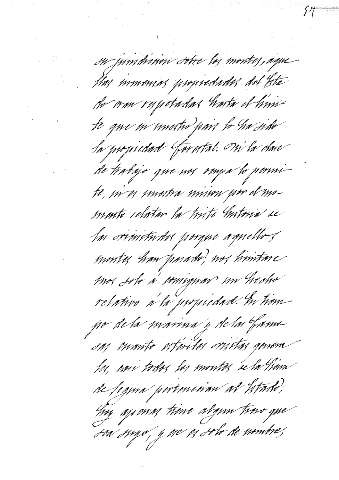 57
su jurisdiccion sobre los montes, aque-
llas inmensas propiedades del Esta-
do eran respetadas hasta el limi-
te que en nuestro pais lo ha sido
la propiedad forestal. Ni la clase
de trabajo que nos ocupa lo permi-
te, ni es nuestra mision por el mo-
mento relatar la triste historia de
las vicisitudes porque aquellos
montes han pasado, nos limitare-
mos solo á consignar un hecho
relativo á la propiedad. En tiem-
po de la marina y de las famo-
sas cuanto estériles visitas genera-
les, casi todos los montes de la Sierra
de Segura pertenecian al Estado,
hoy apenas tiene algun trozo que
sea suyo, y no es solo de nombre,